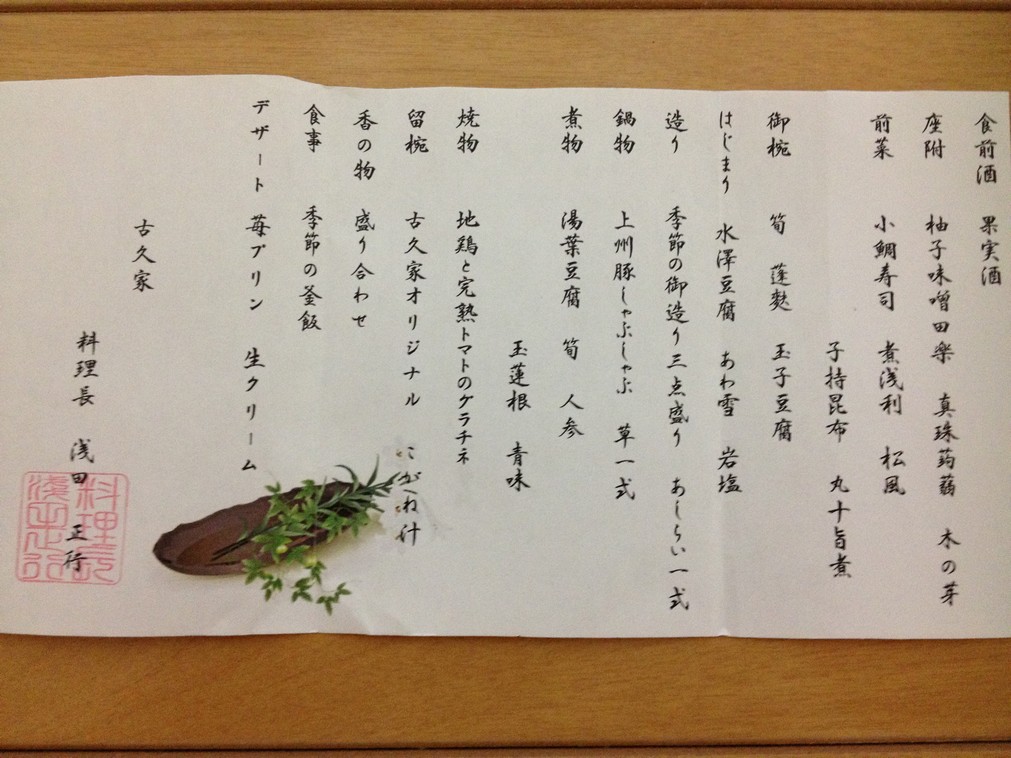 食前酒 果実酒
座附 柚子味噌田楽 真珠蒟蒻 木の芽
前菜 小鯛寿司 煮浅利 松風
子持昆布 丸十旨煮
御椀 筍 蓬麩 玉子豆腐
はじまり 水澤豆腐 あわ雪 岩塩
造り 季節の御造り三点盛り あしらい一式
鍋物 上州豚しゃぶしゃぶ 草一式
煮物 湯葉豆腐 筍 人参
玉蓮根 青味
焼物 地鶏と完熟トマトのグラチネ
留椀 古久家オリジナル こがね汁
香の物 盛り合わせ
食事 季節の釜飯
デザート 苺プリン 生クリーム
古久家
料理長 浅田 正行
料理長
浅田正行